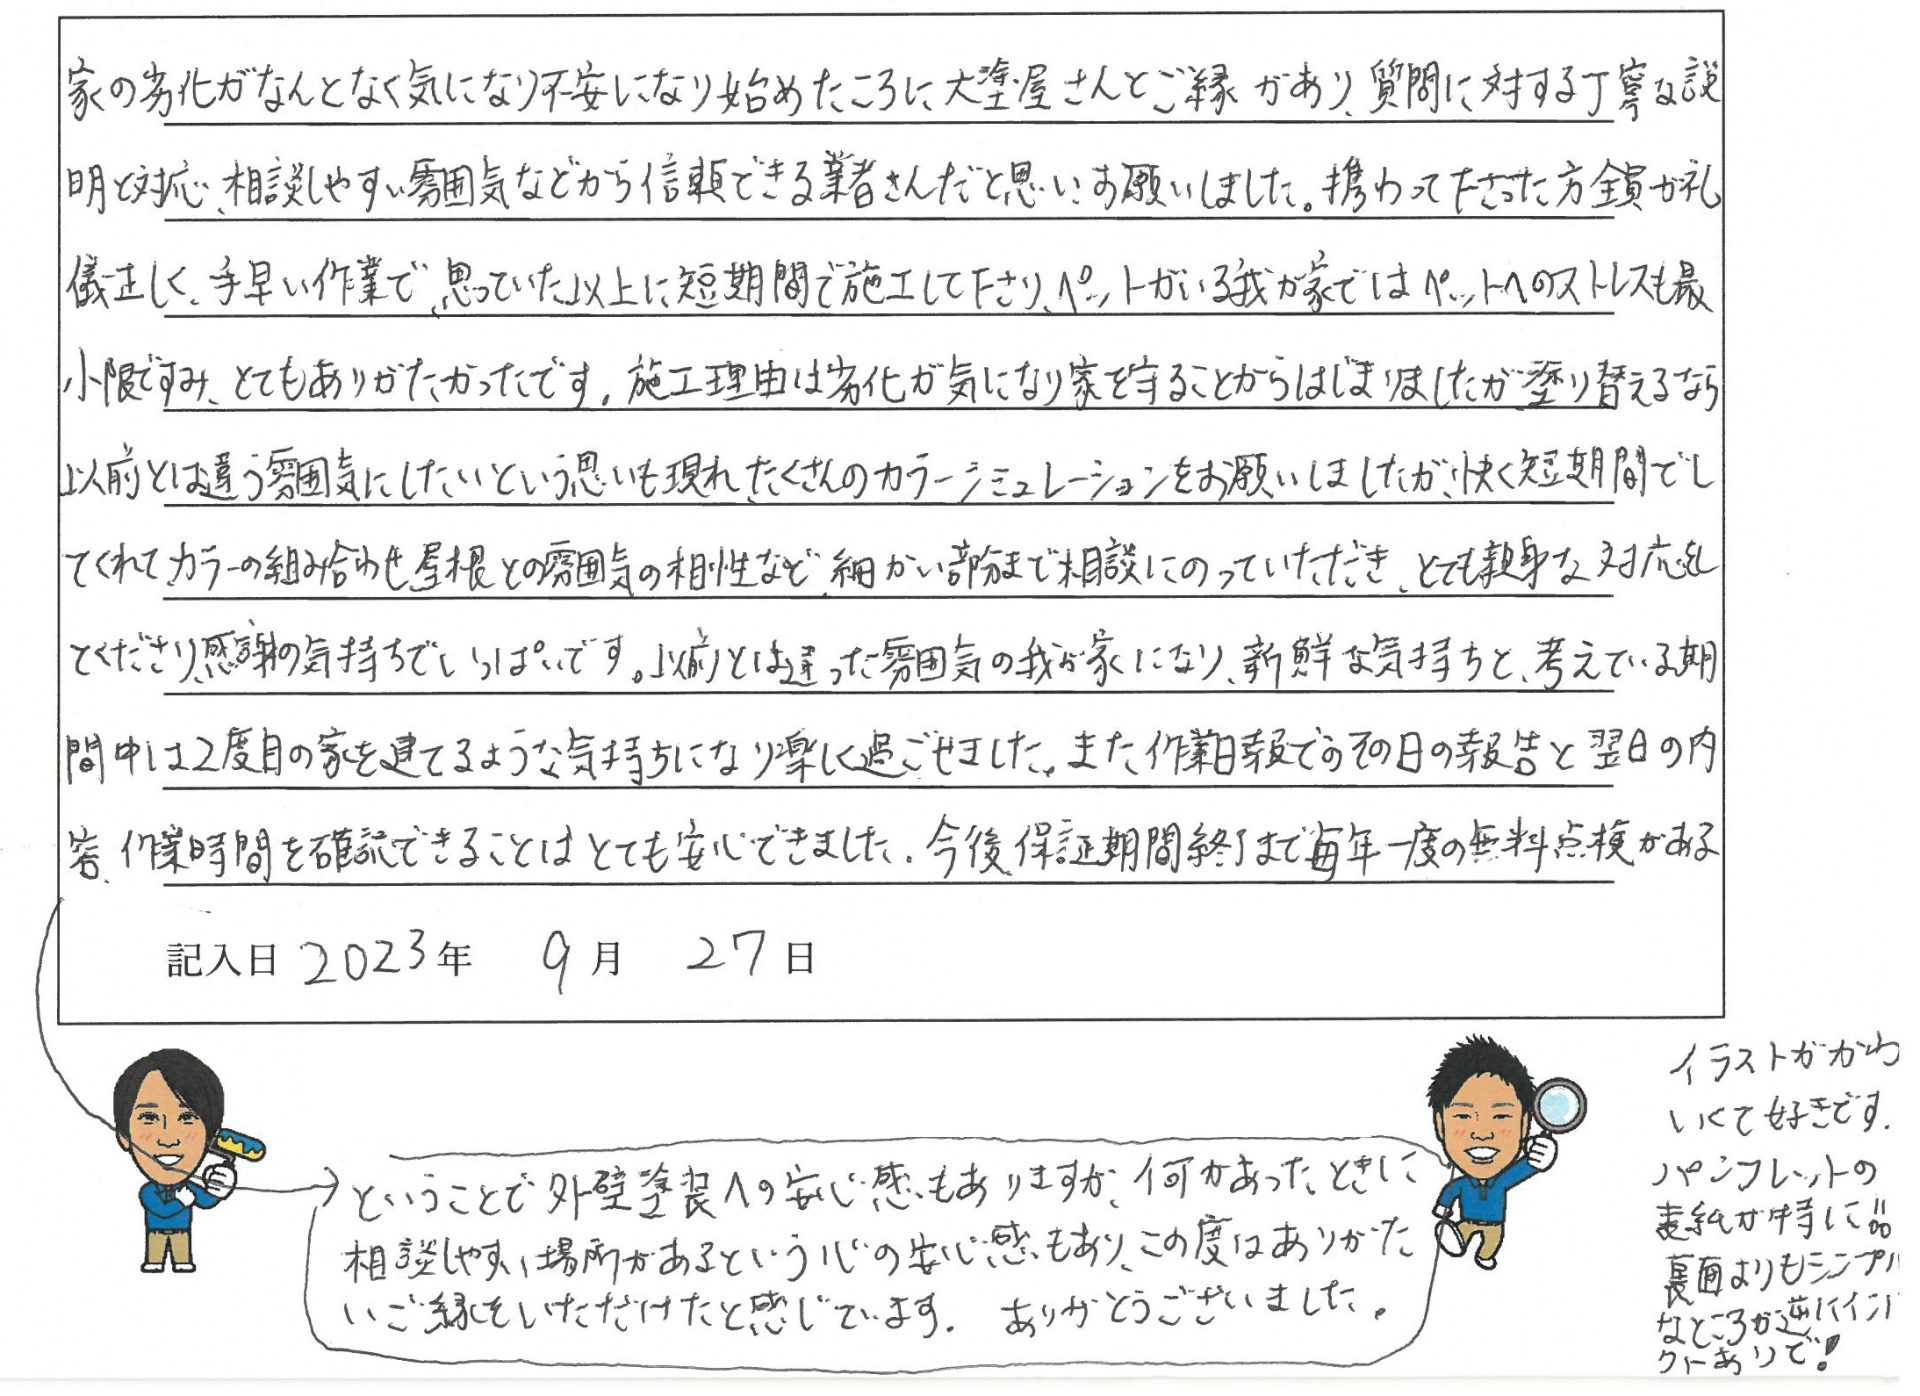 家の劣化がなんとなく気になり不安になり始めたころに大塗屋さんとご縁があり、質問に対する丁寧な説
明と対応、相談しやすい雰囲気などから信頼できる業者さんだと思いお願いしました。携わって下さった方全員が礼
儀正しく、手早い作業で、思っていた以上に短期間で施工して下さり、ペットがいる我が家ではペットへのストレスも最
小限ですみ、とてもありがたかったです。施工理由は劣化が気になり家を守ることからはじまりましたが塗り替えるなら
以前とは違う雰囲気にしたいという思いも現れ、たくさんのカラーシミュレーションをお願いしましたが、快く短期間でし
てくれてカラーの組み合わせ屋根との雰囲気の相性など、細かい部分まで相談にのっていただき、とても親身な対応を
とくださり、感謝の気持ちでいっぱいです。以前とは違った雰囲気の我が家になり、新鮮な気持ちと、考えている期
間中は2度目の家を建てるような気持ちになり楽しく過ごせました。また作業日報でのその日の報告と翌日の内
容、作業時間を確認できることはとても安心できました。今後、保証期間終了まで毎年一度の無料点検がある
記入日 2023年 9月 27日
ということで外壁塗装への安心感もありますが、何かあったときに
相談しやすい場所があるという心の安心感もあり、この度はありがた
いご縁をいただけたと感じています。 ありがとうございました。
イラストがかわ
いくて好きです。
パンフレットの
表紙が特に!!
裏面よりもシンプル
なところが逆にインパ
クトありで!